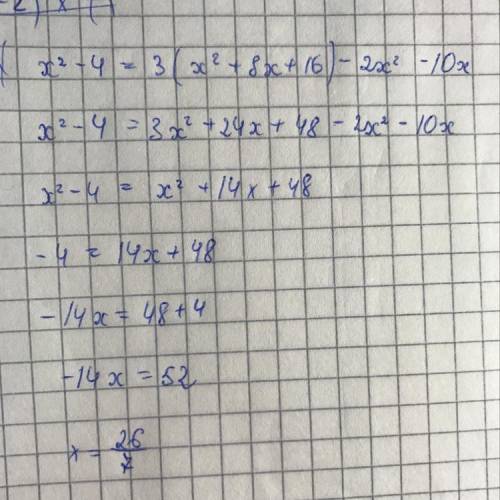 x² - 4 = 3(x² + 8x + 16) - 2x² - 10x
x² - 4 = 3x² + 24x + 48 - 2x² - 10x
x² - 4 = x² + 14x + 48
- 4 = 14x + 48
- 14x = 48 + 4
- 14x = 52
x = 26/7